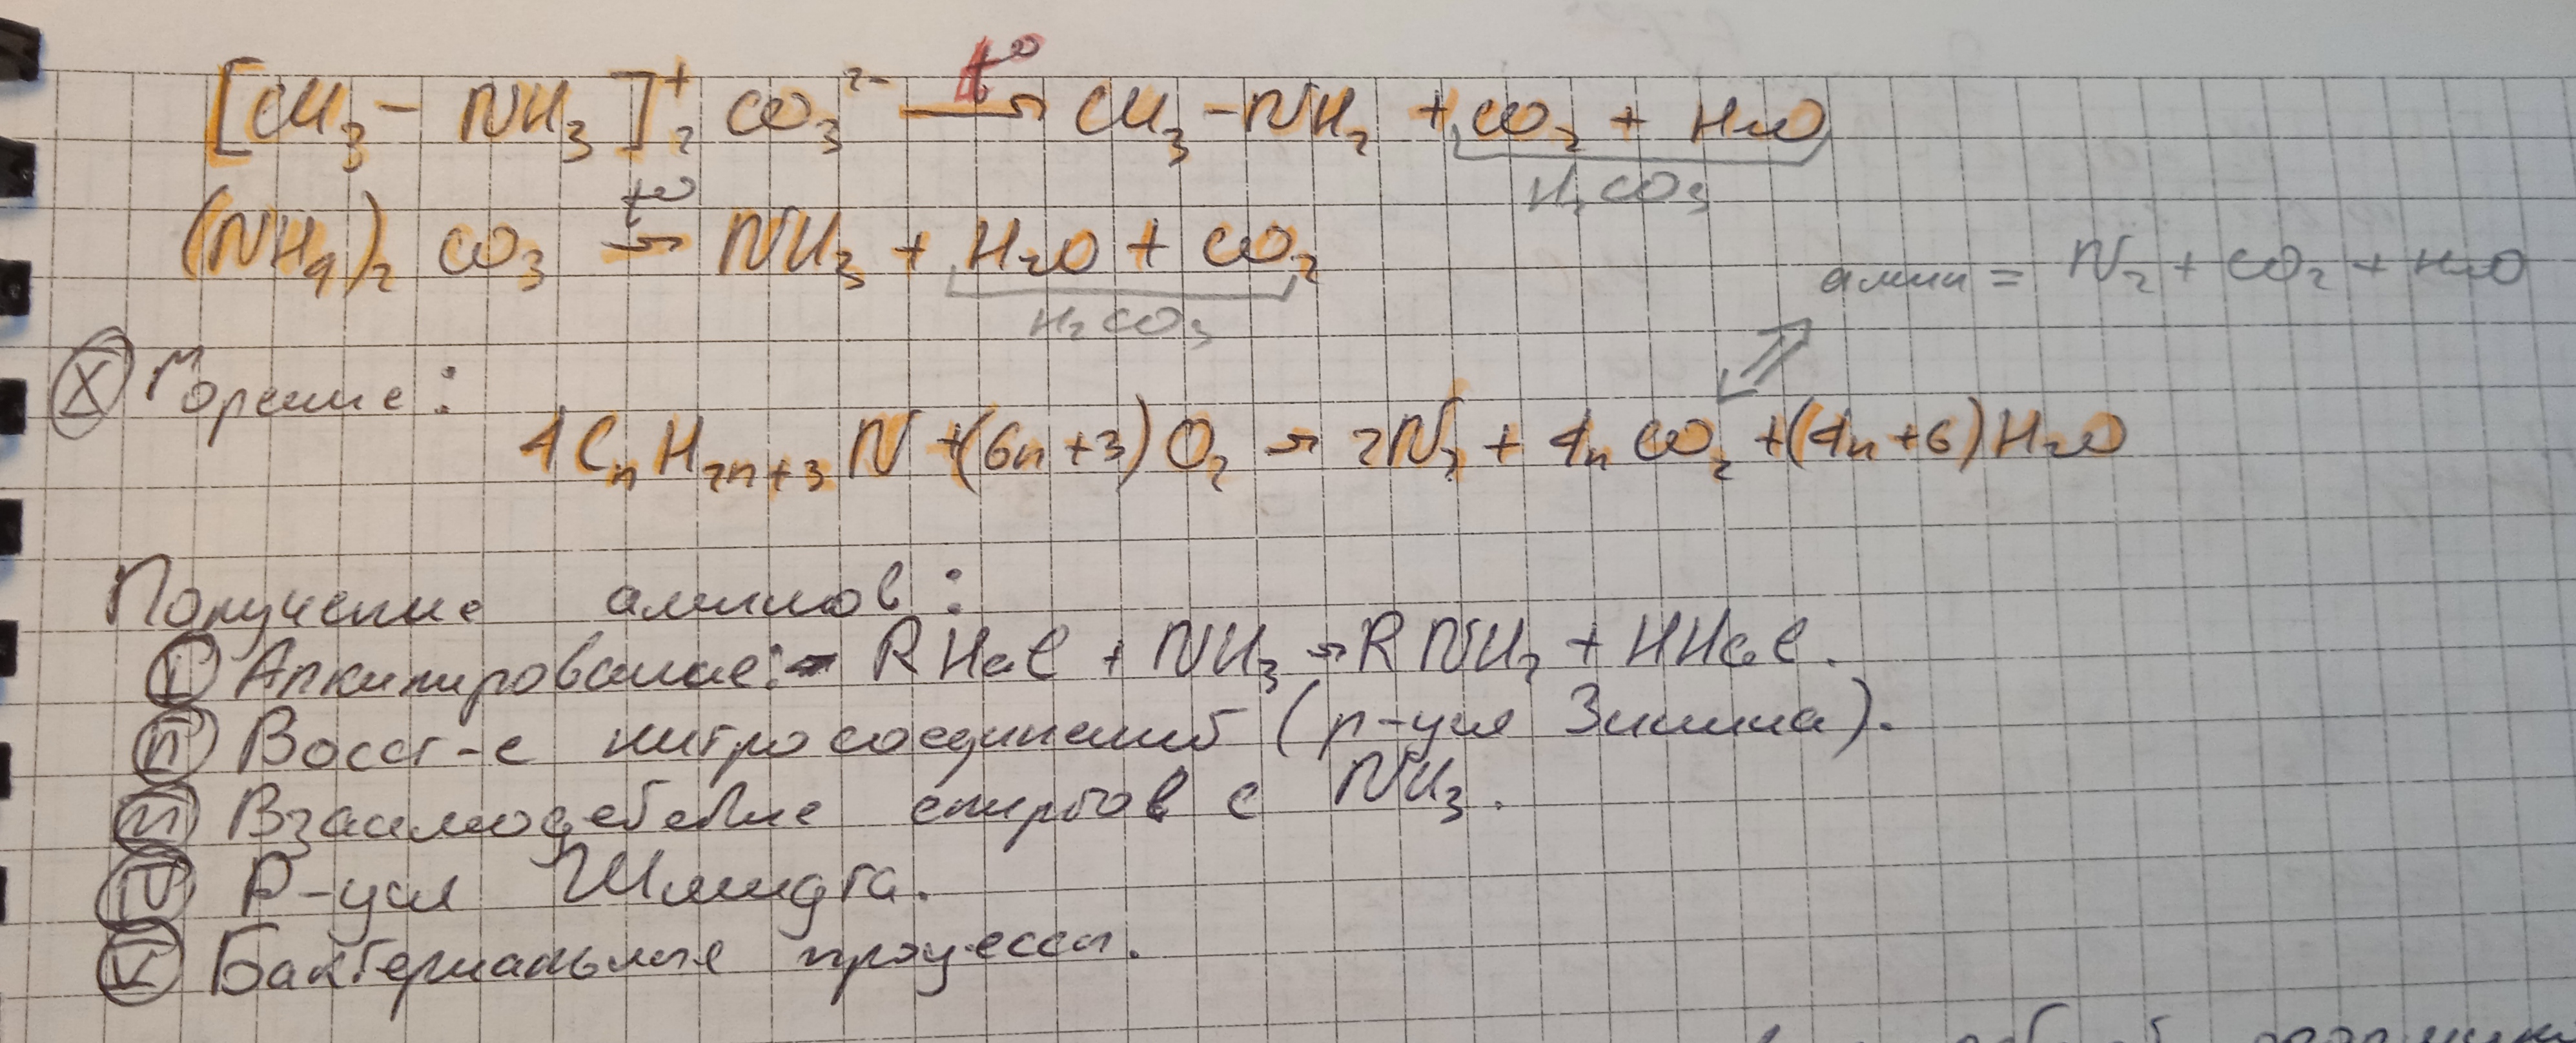 [CH₃ – NH₃]₂⁺ CO₃²⁻ —t°→ CH₃–NH₂ + CO₂ + H₂O
H₂CO₃
(NH₄)₂ CO₃ —t°→ NH₃ + H₂O + CO₂
H₂CO₃
амин = N₂ + CO₂ + H₂O
Ⓧ Горение:
4CₙH₂ₙ₊₃N + (6n+3)O₂ → 2N₂ + 4n CO₂ + (4n+6)H₂O
Получение аминов:
Ⓘ Алкилирование: RHal + NH₃ → RNH₂ + HHal.
Ⅱ Восст-е нитросоединений (р-ция Зинина).
Ⅲ Взаимодействие спиртов с NH₃.
Ⅳ Р-ция Шмидта.
Ⅴ Бактериальные процессы.